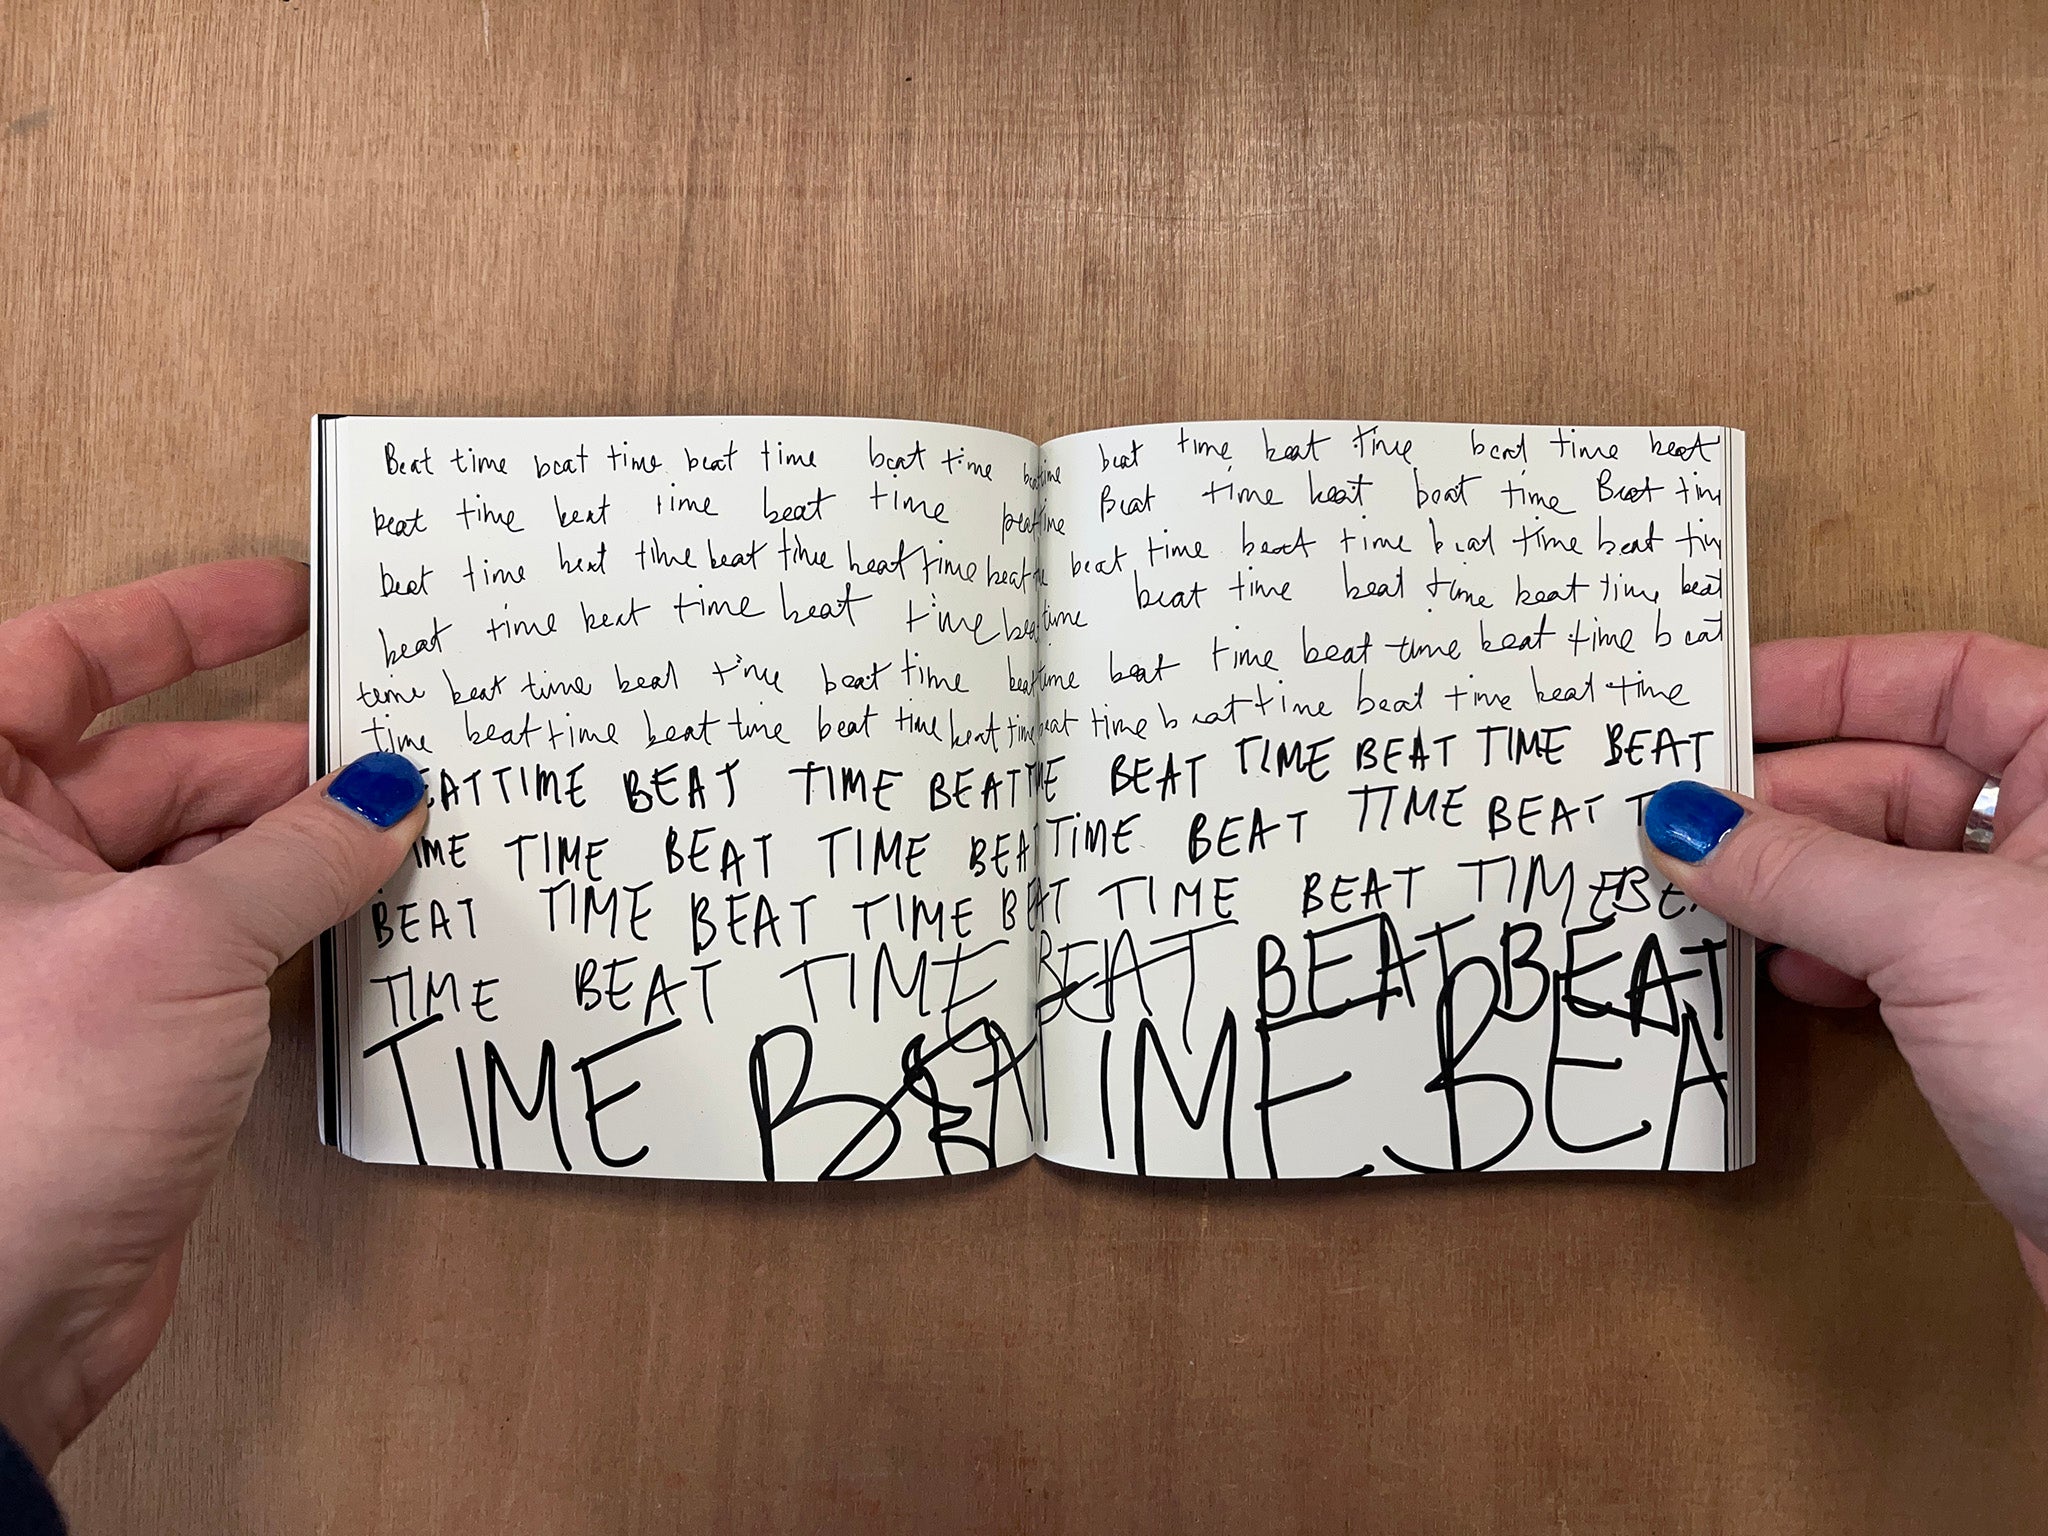 Beat time beat time beat time beat time beat time beat time beat time beat time beat
beat time beat time beat time beat time Beat time beat boat time Beat tim
beat time beat time beat time beat time beat time beat time beat time beat time beat tim
beat time beat time beat time beat time beat time beat time beat time beat
time beat time beat time beat time beat time beat time beat time beat time beat
time beat time beat time beat time beat time beat time beat time beat time beat time
EAT TIME BEAT TIME BEAT TIME BEAT TIME BEAT TIME BEAT
IME TIME BEAT TIME BEA TIME BEAT TIME BEAT T
BEAT TIME BEAT TIME BEAT TIME BEAT TIME BE
TIME BEAT TIME BEAT BEAT BEAT
TIME BEA TIME BEA